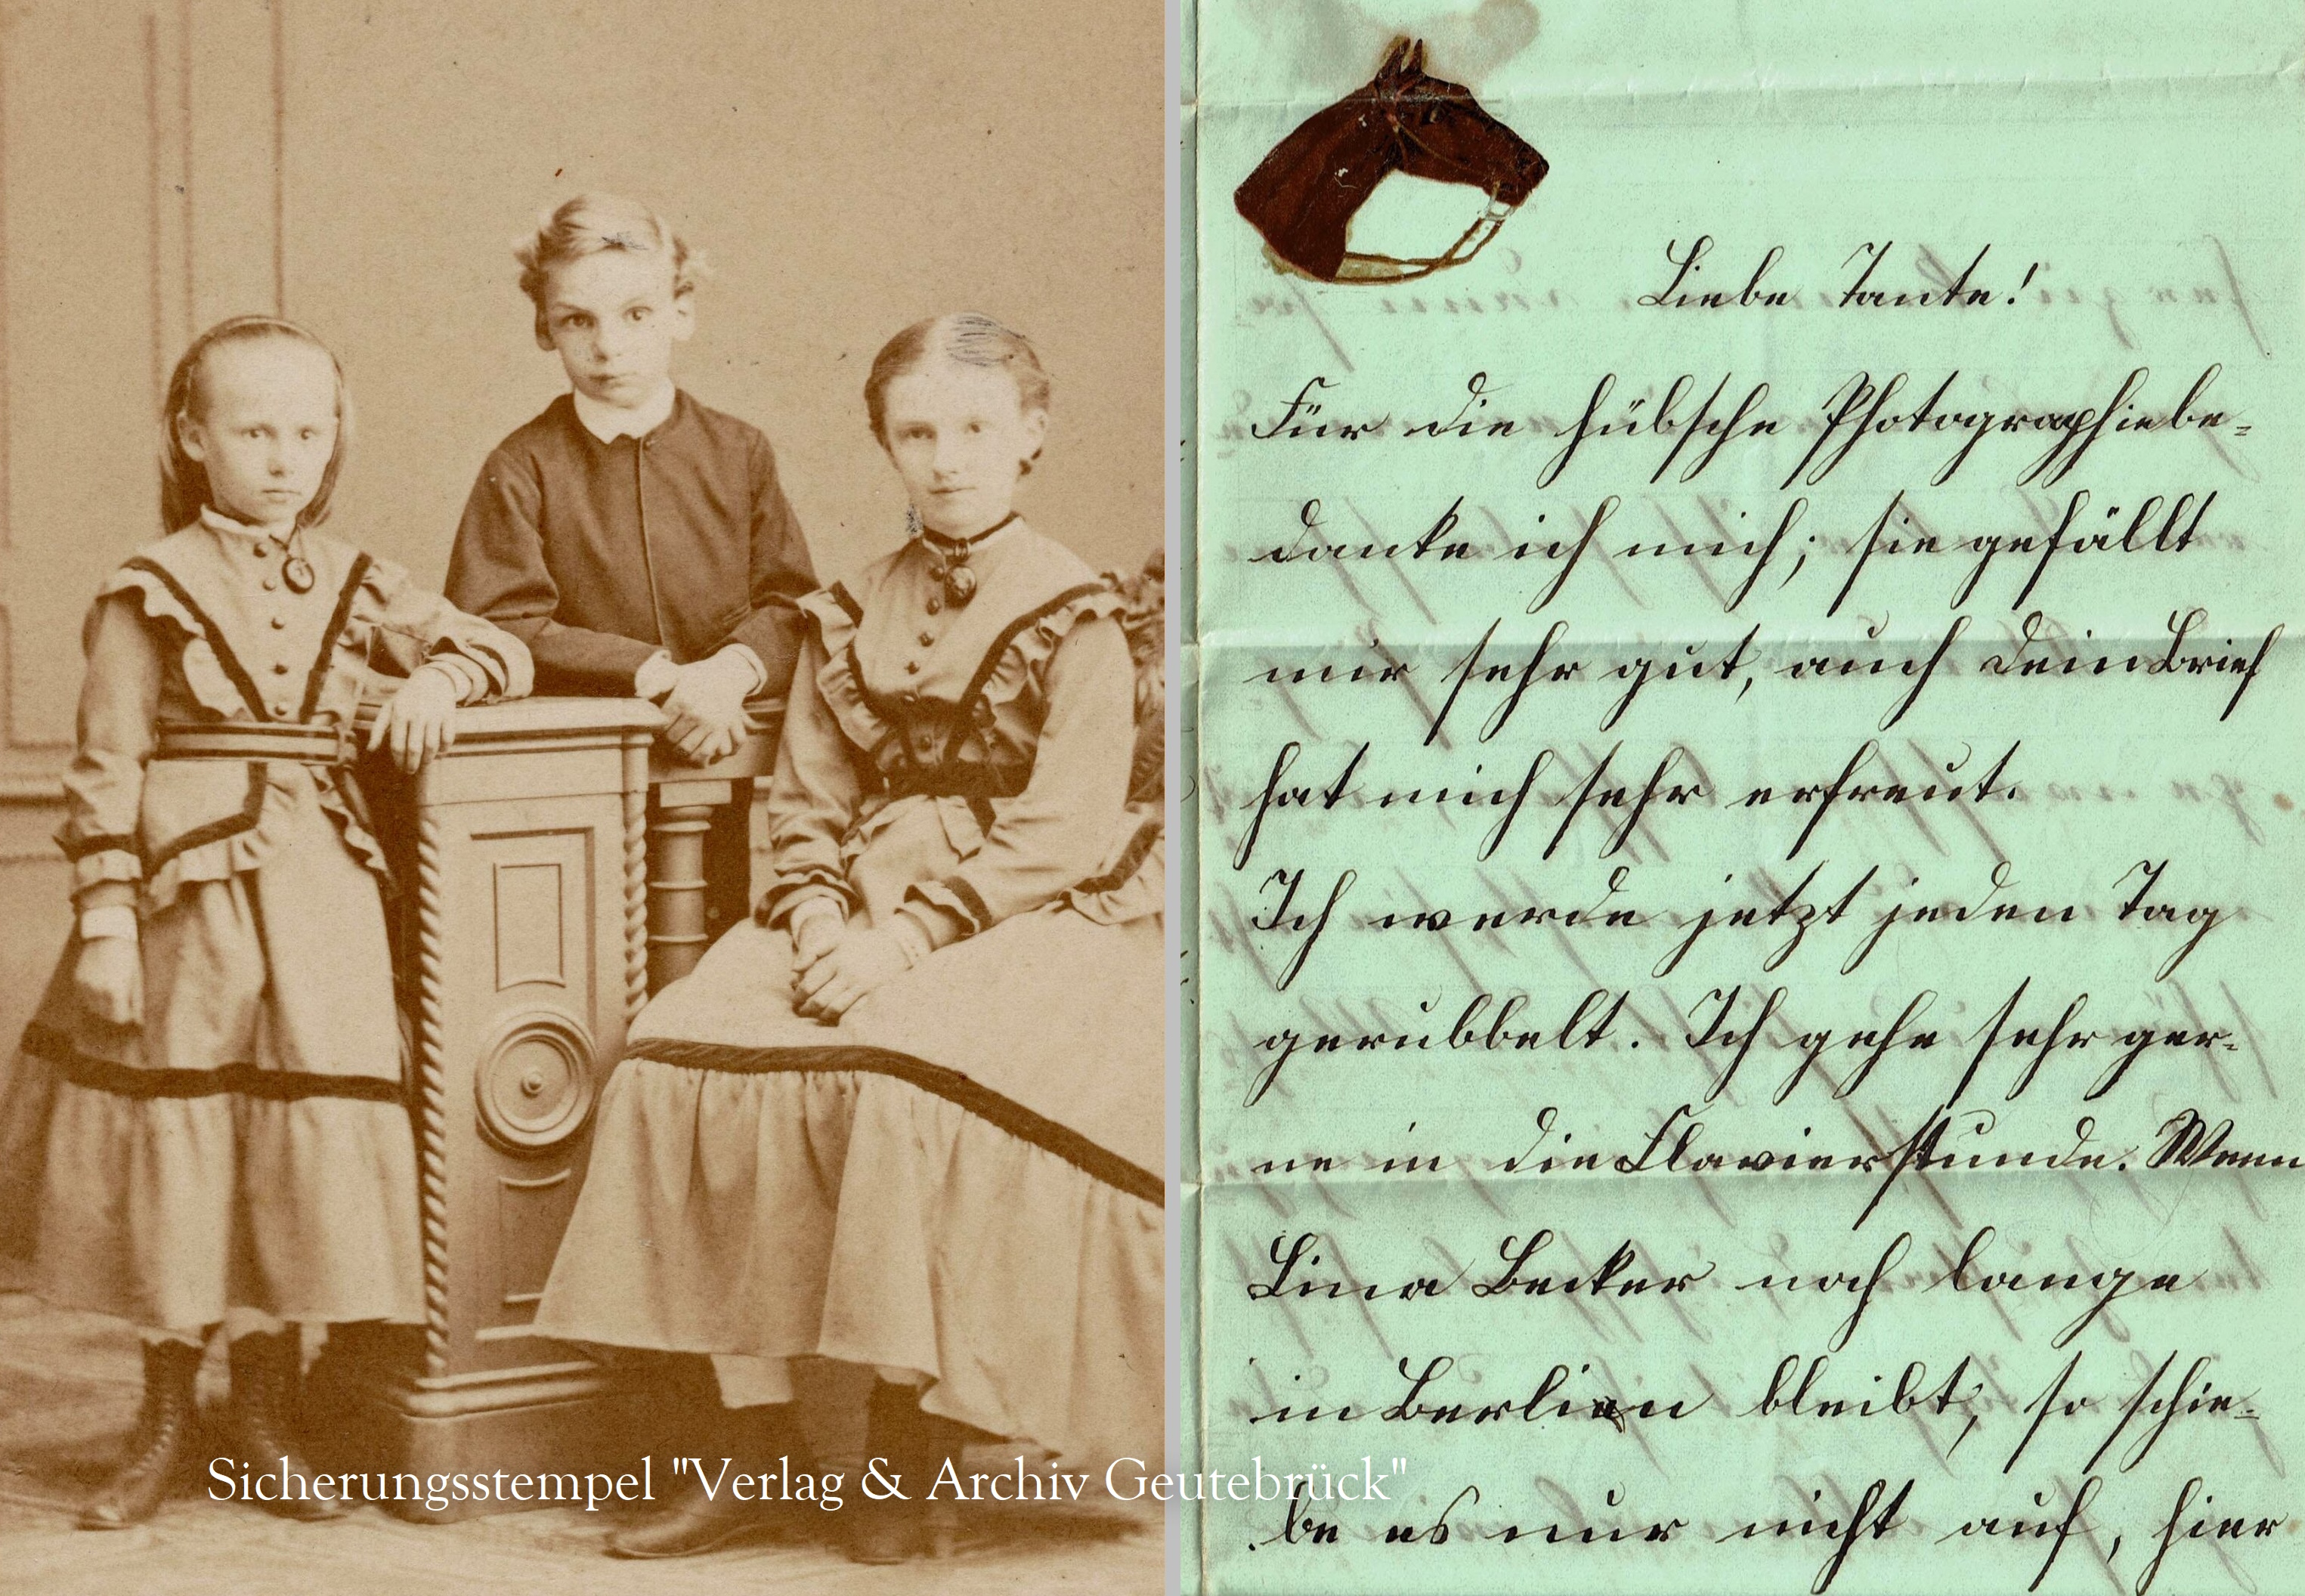 Liebe Tante!
Für die hübsche Photographie be=
danke ich mich; sie gefällt
mir sehr gut, auch Dein Brief
hat mich sehr erfreut.
Ich werde jetzt jeden Tag
gerubbelt. Ich gehe sehr ger=
ne in die Clavierstunde. Wenn
Lina Becker noch lange
in Berlin bleibt, so schie=
be es nur nicht auf, hier
Sicherungsstempel "Verlag & Archiv Geutebrück"